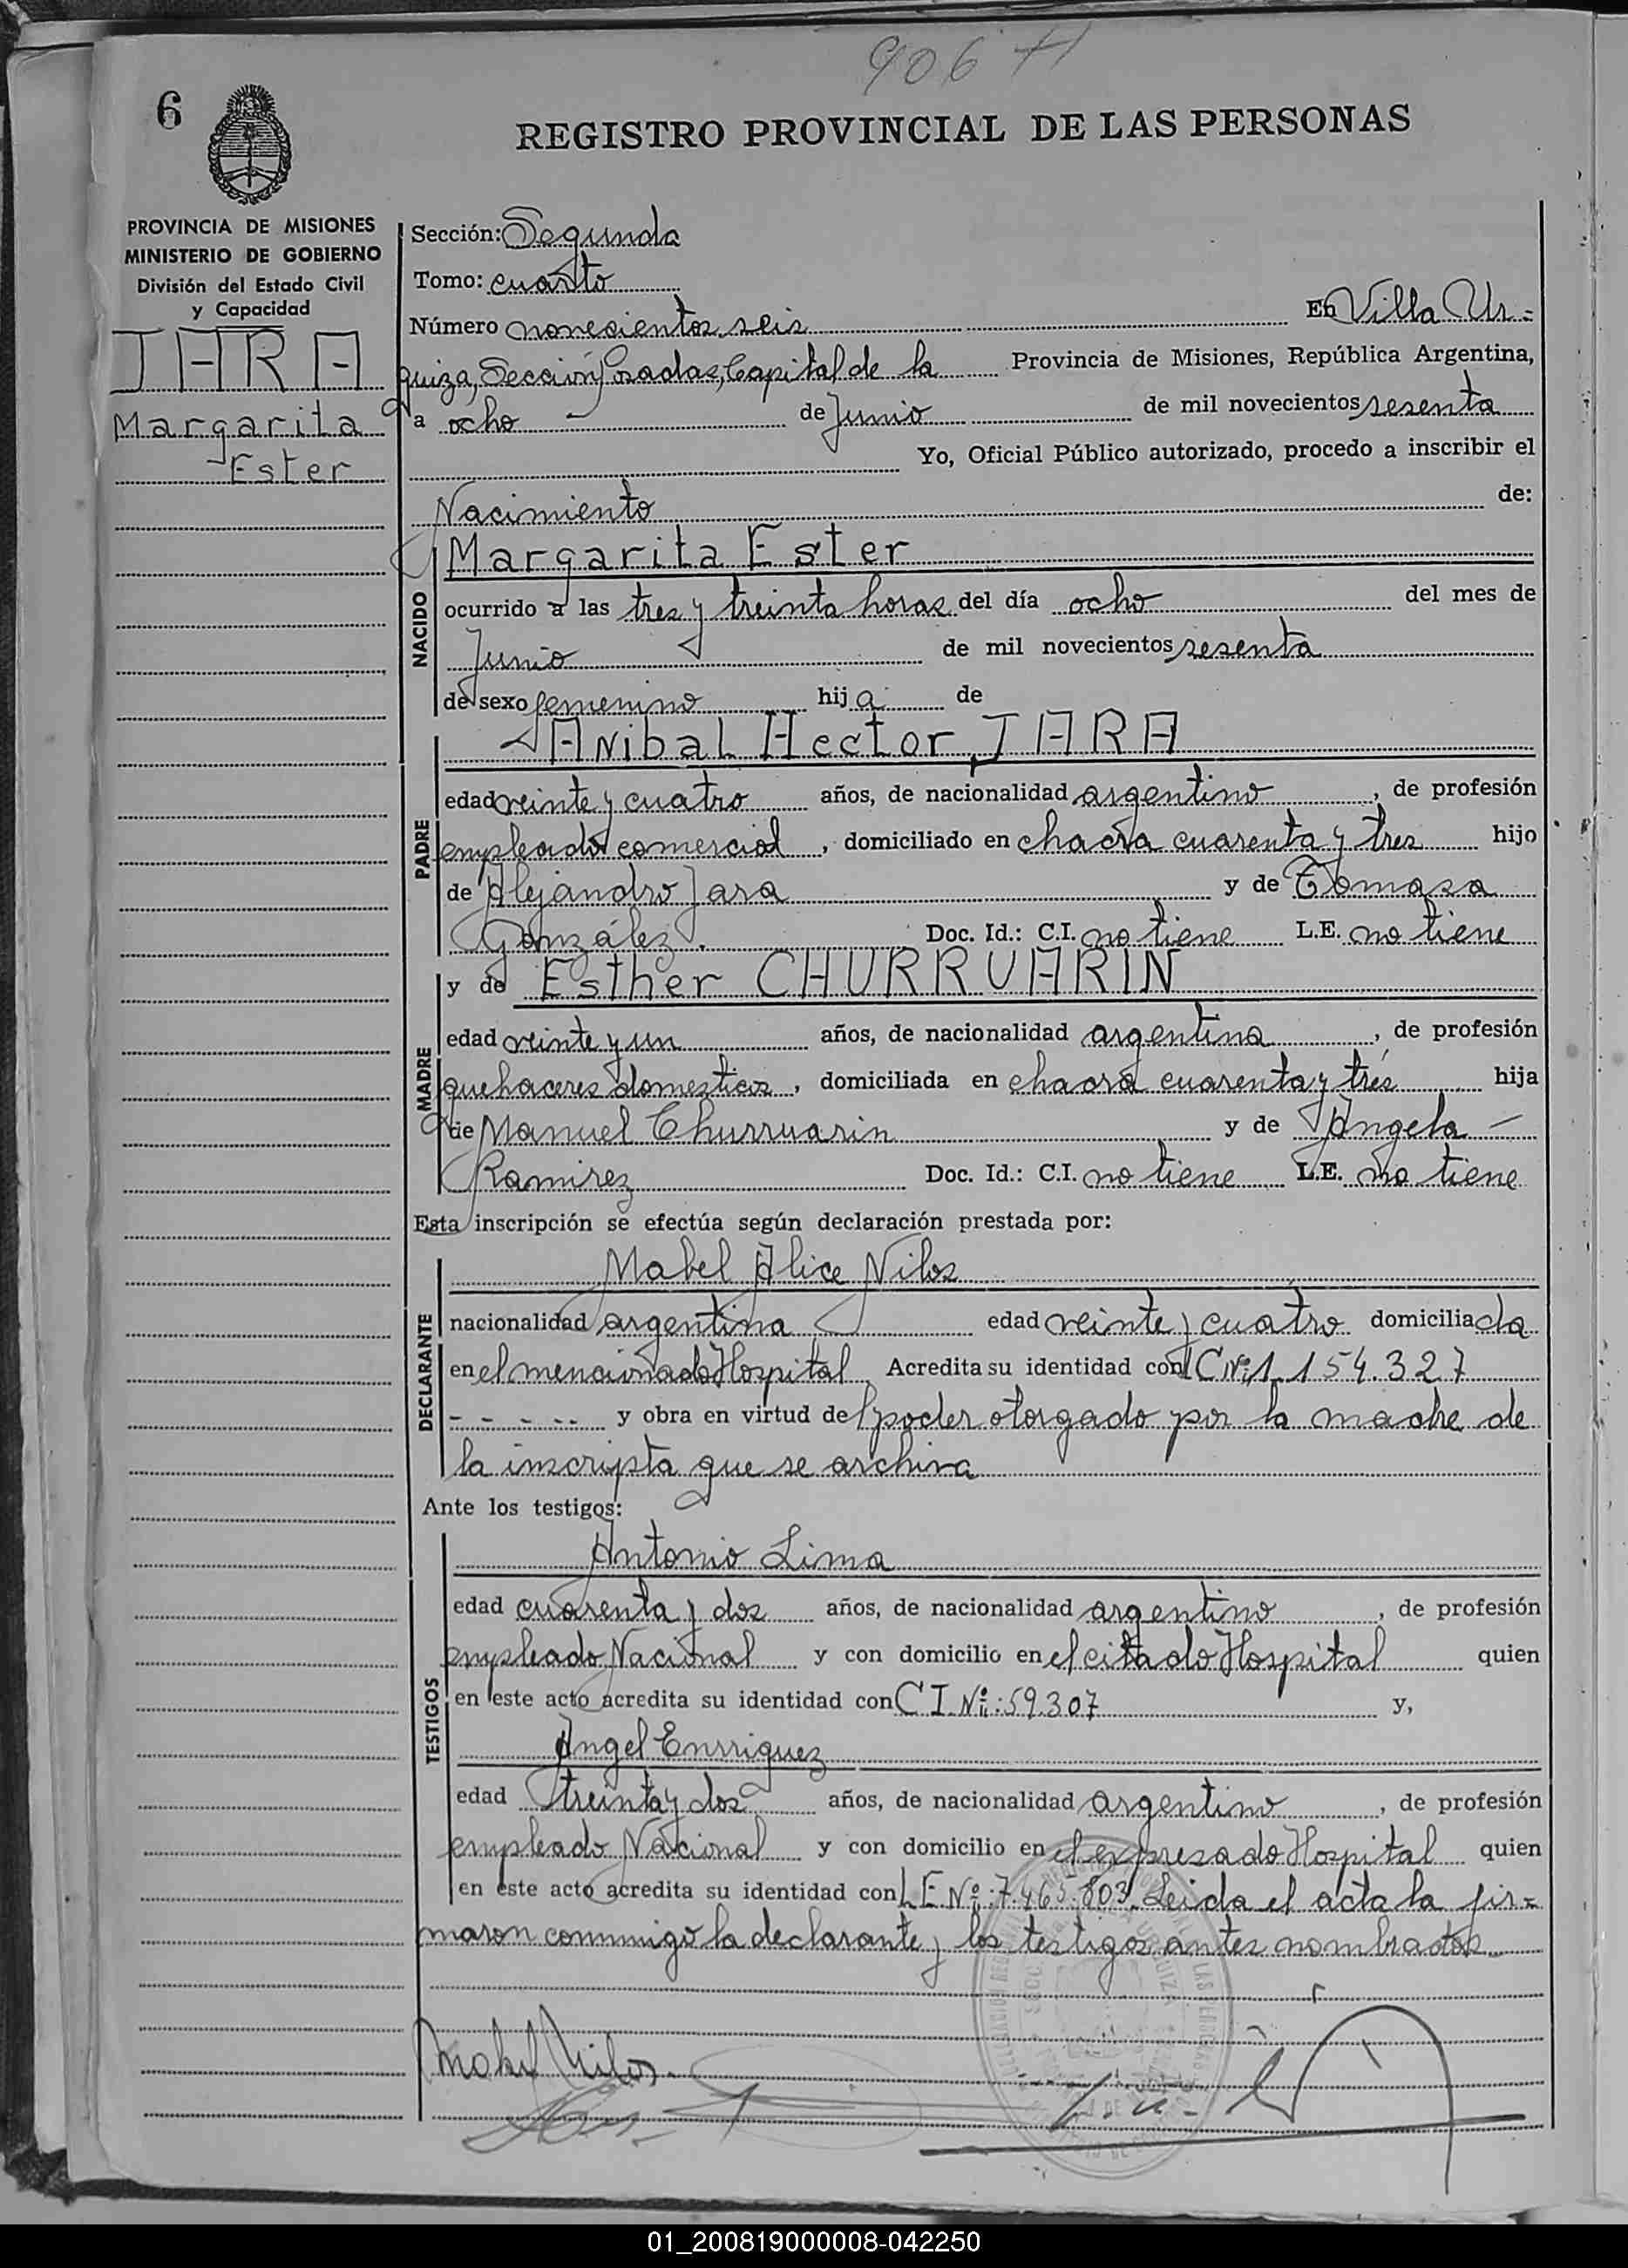 906 H
6
REGISTRO PROVINCIAL DE LAS PERSONAS
PROVINCIA DE MISIONES
MINISTERIO DE GOBIERNO
División del Estado Civil
y Capacidad
JARA
Margarita
Ester
Sección: Segunda
Tomo: cuarto
Número novecientos seis En Villa Ur=
quiza, Sección Posadas, Capital de la Provincia de Misiones, República Argentina,
a ocho de Junio de mil novecientos sesenta
Yo, Oficial Público autorizado, procedo a inscribir el
Nacimiento de:
NACIDO
Margarita Ester
ocurrido a las tres y treinta horas del día ocho del mes de
Junio de mil novecientos sesenta
de sexo femenino hija de
PADRE
Anibal Hector JARA
edad veinte y cuatro años, de nacionalidad argentino, de profesión
empleado comercial, domiciliado en chacra cuarenta y tres hijo
de Alejandro Jara y de Tomasa
González. Doc. Id.: C.I. no tiene L.E. no tiene
MADRE
y de Esther CHURRUARIN
edad veinte y un años, de nacionalidad argentina, de profesión
quehaceres domesticos, domiciliada en chacra cuarenta y tres hija
de Manuel Churruarin y de Angela
Ramirez Doc. Id.: C.I. no tiene L.E. no tiene
Esta inscripción se efectúa según declaración prestada por:
DECLARANTE
Mabel Alice Nilos
nacionalidad argentina edad veinte y cuatro domiciliada
en el mencionado Hospital Acredita su identidad con C Nº: 1.154.327
- - - - - y obra en virtud del poder otorgado por la madre de
la inscripta que se archiva
Ante los testigos:
TESTIGOS
Antonio Lima
edad cuarenta y dos años, de nacionalidad argentino, de profesión
empleado Nacional y con domicilio en el citado Hospital quien
en este acto acredita su identidad con C I. Nº: 59.307 y,
Angel Enrriquez
edad treinta y dos años, de nacionalidad argentino, de profesión
empleado Nacional y con domicilio en el expresado Hospital quien
en este acto acredita su identidad con L E Nº: 7.465.803. Leida el acta la fir=
maron conmmigo la declarante y los testigos antes nombrados
Mabel Nilos.
01_200819000008-042250